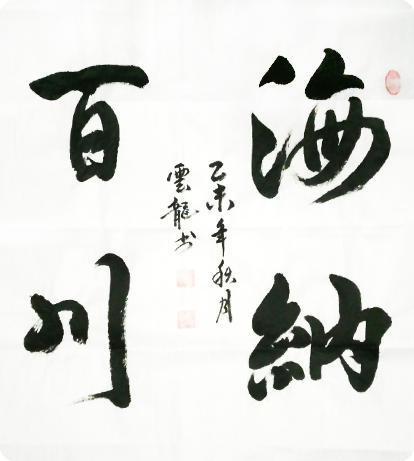 海納
百川
乙未年秋月
雲龍书